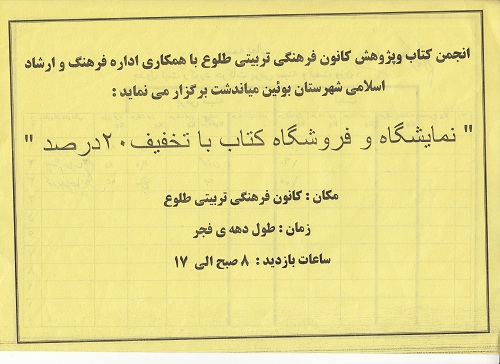 انجمن کتاب وپژوهش کانون فرهنگی تربیتی طلوع با همکاری اداره فرهنگ و ارشاد
اسلامی شهرستان بوئین میاندشت برگزار می نماید :
" نمایشگاه و فروشگاه کتاب با تخفیف ۲۰درصد "
مکان : کانون فرهنگی تربیتی طلوع
زمان : طول دهه ی فجر
ساعات بازدید : ۸ صبح الی ۱۷